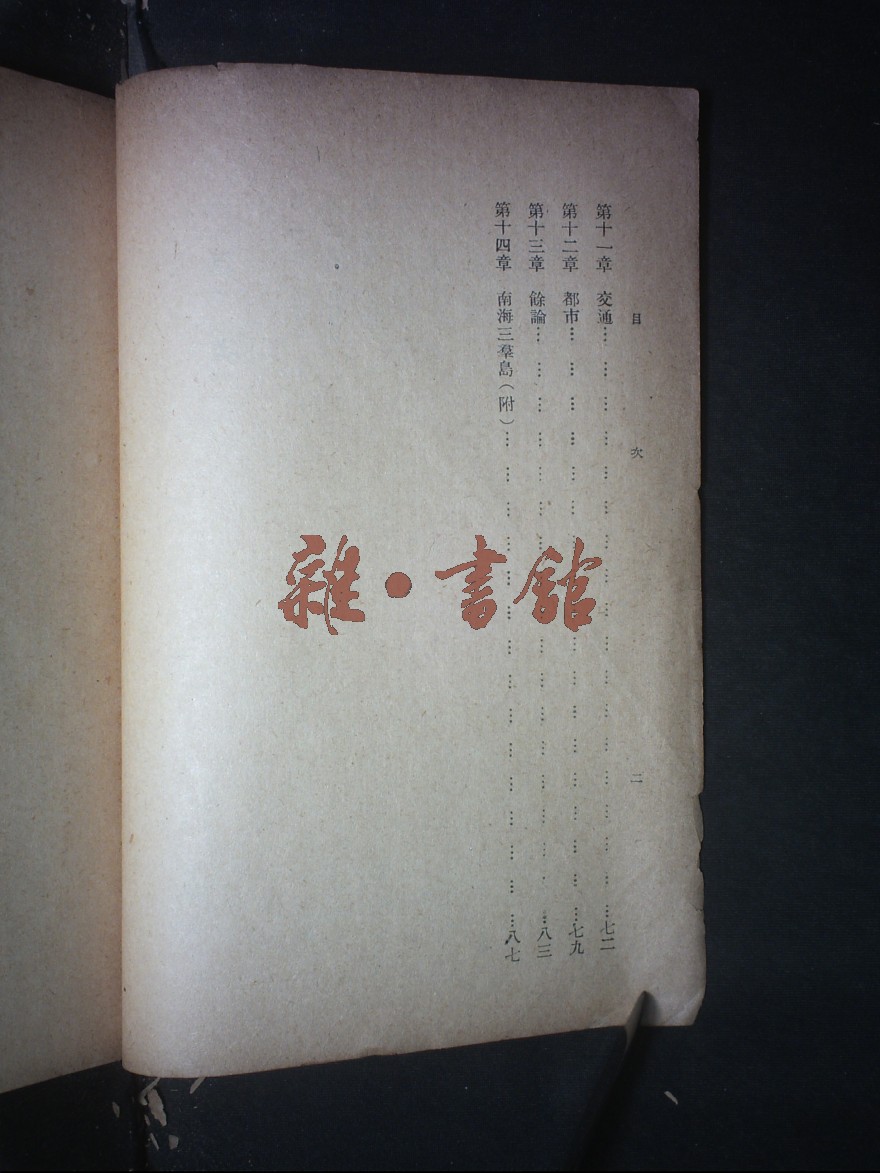 目次 二
第十一章 交通……………七二
第十二章 都市……………七九
第十三章 餘論……………八三
第十四章 南海三羣島（附）……………八七
雜·書館